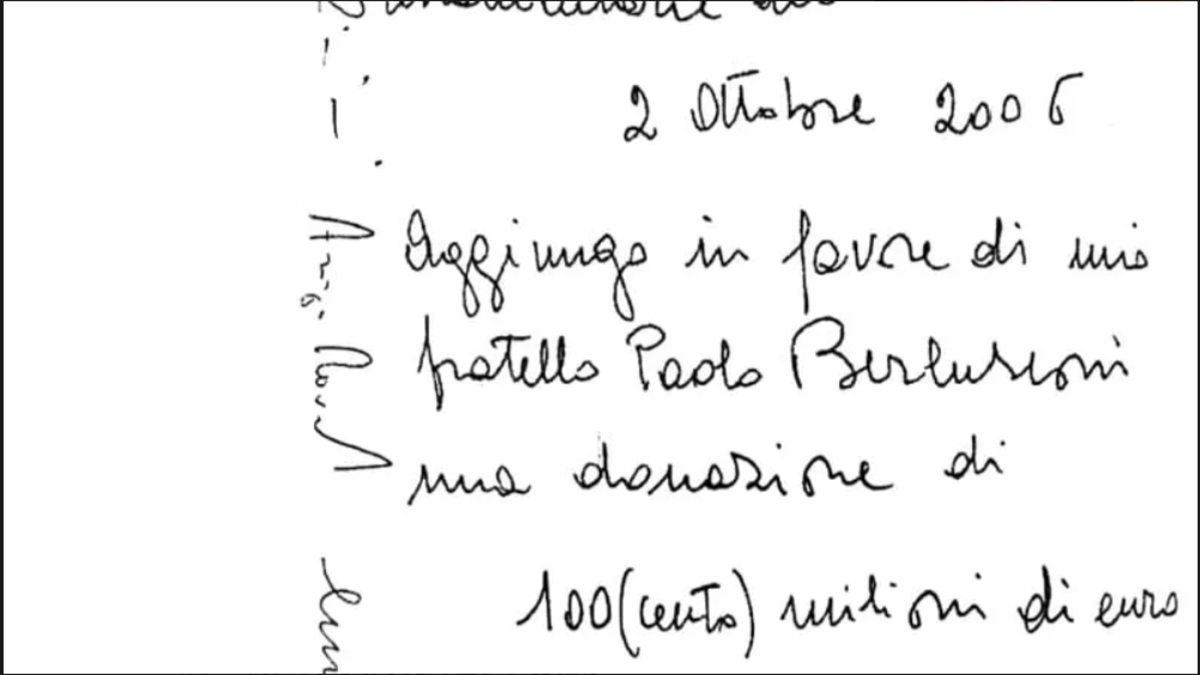 2 Ottobre 2006
Aggiungo in favore di mio
fratello Paolo Berlusconi
una donazione di
100 (cento) milioni di euro